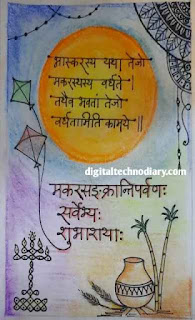 भास्करस्य यथा तेजो
मकरस्थस्य वर्धते ।
तथैव भवतां तेजो
वर्धतामिति कामये ॥
digitaltechnodiary.com
मकरसङ्क्रान्तिपर्वणः
सर्वेभ्यः
शुभाशयाः